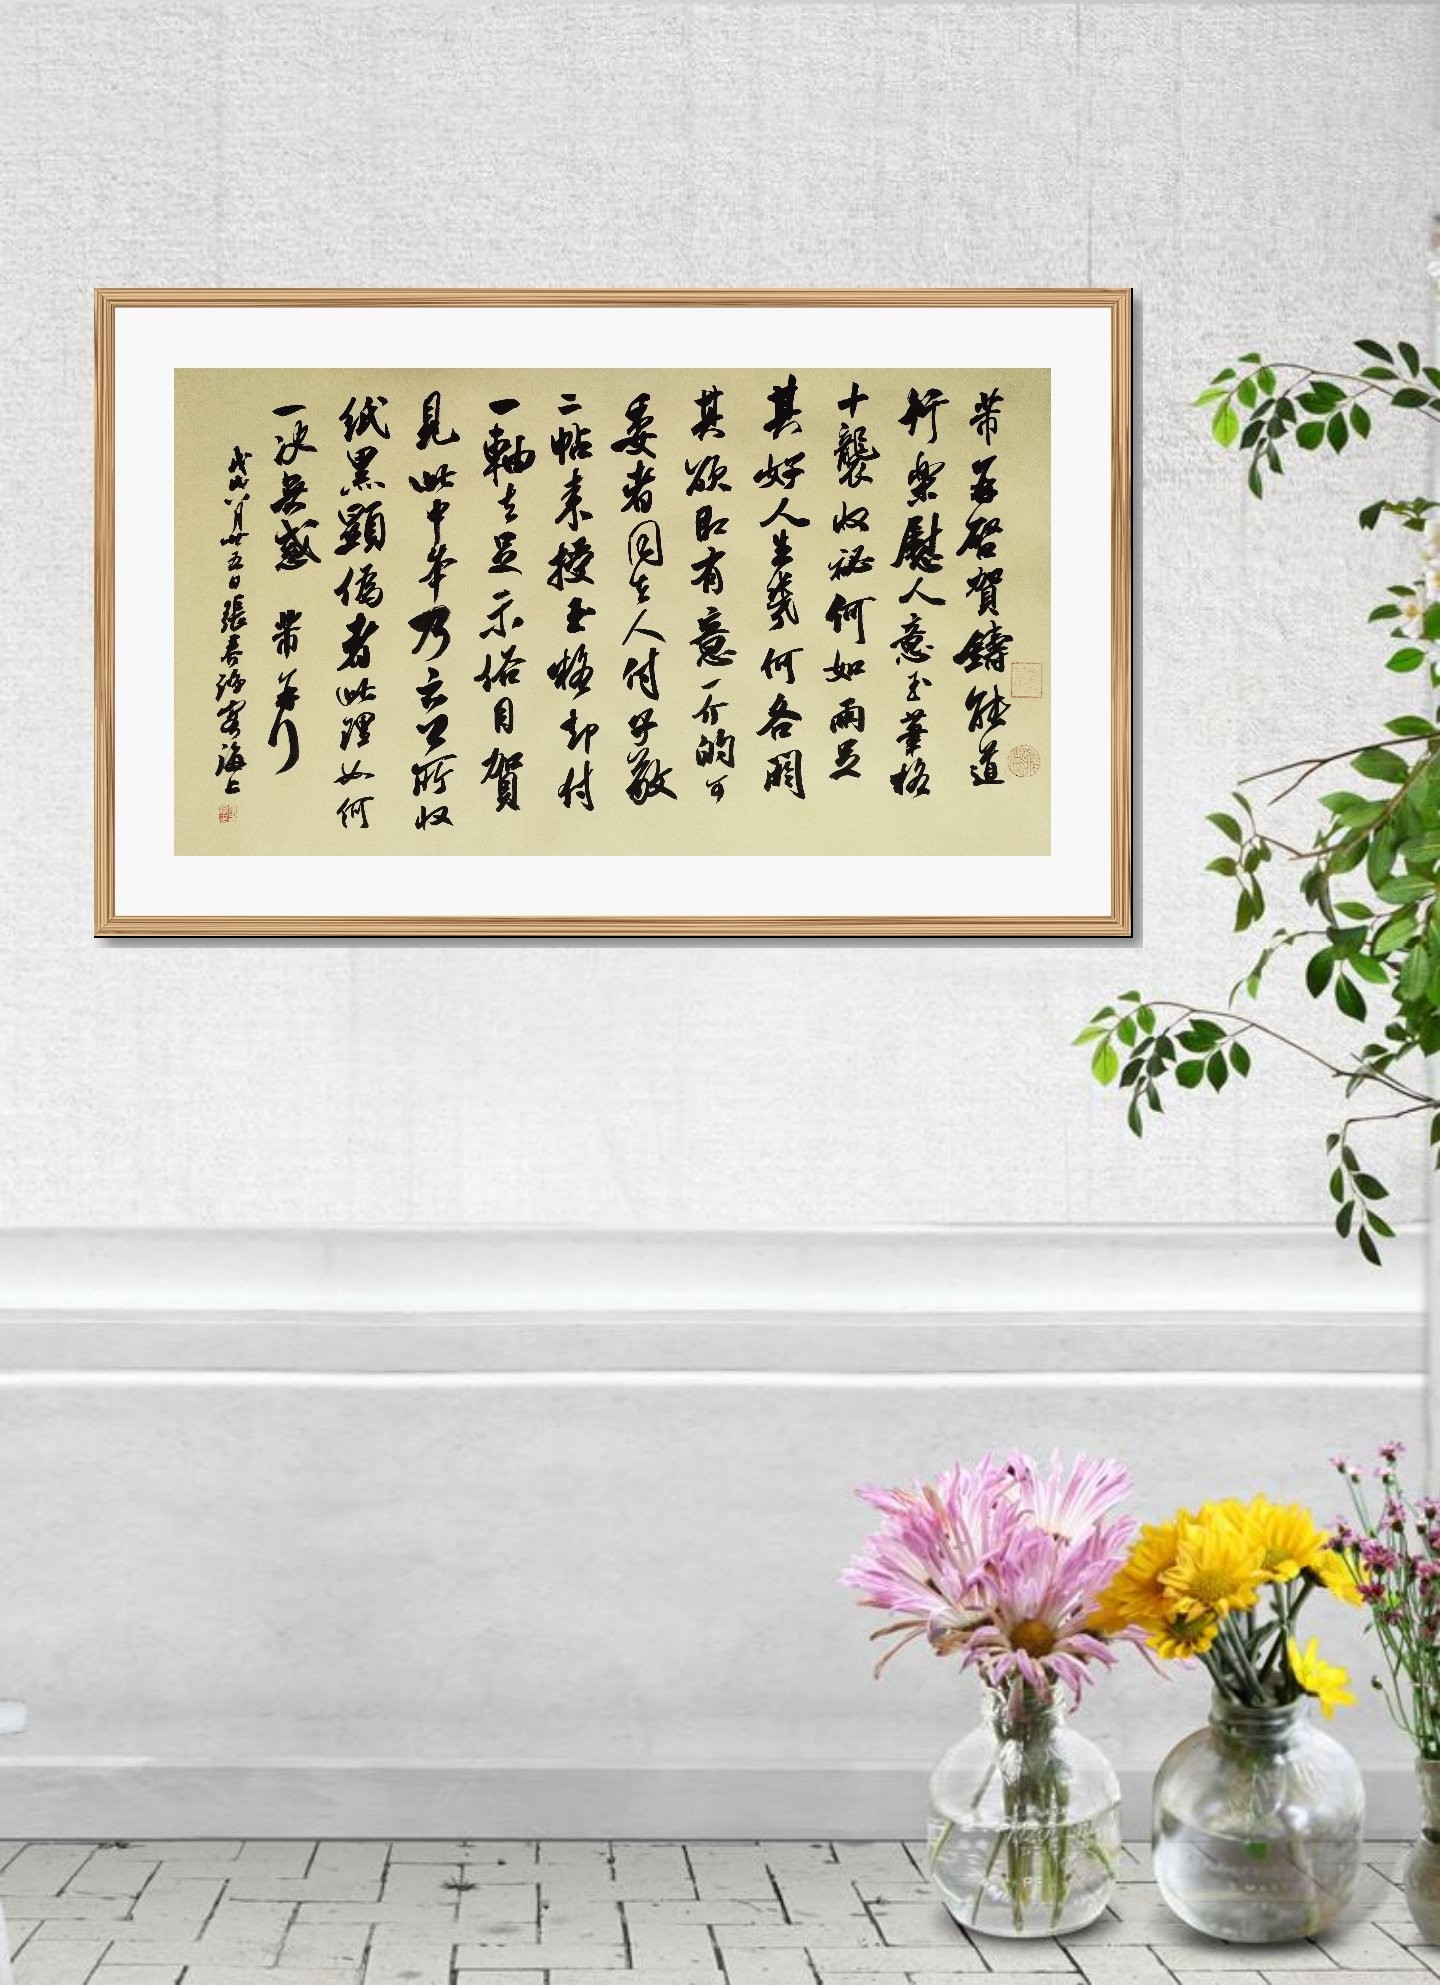 芾再啓賀鑄能道
行樂慰人意玉筆格
十襲收祕何如兩足
其好人生幾何各閼
其欲即有意一介的可
委者同去人付子敬
二帖來授玉格却付
一軸去足示俗目賀
見此中本乃云公所收
紙黑顯偽者此理如何
一決無惑 芾
戊戌八月廿五日張春 海上